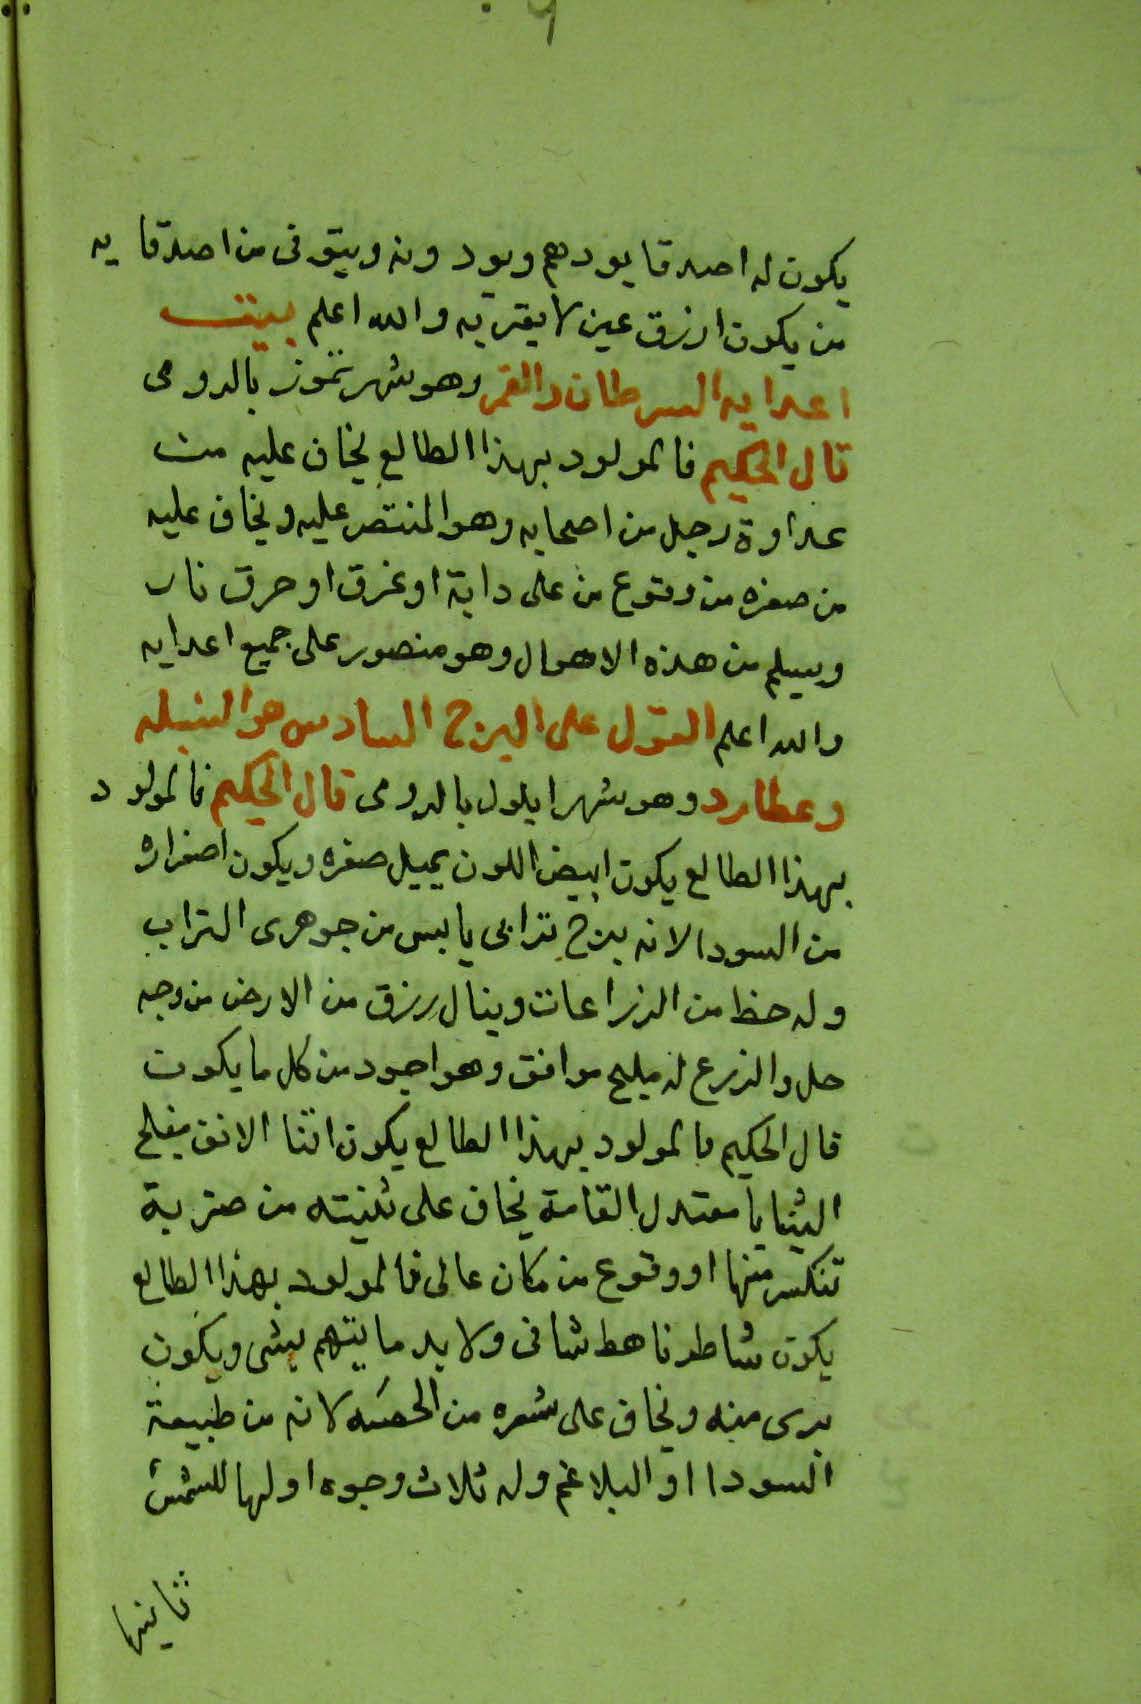 يكون له اصدقا يودهم ويودونه ويتوقى من اصدقايه
من يكون ازرق عين لا يقربه والله اعلم بيت
اعدايه السرطان والقمر وهو شهر تموز بالرومى
قال الحكيم فالمولود بهذا الطالع يخاف عليه من
عداوة رجل من اصحابه وهو المنتصر عليه ويخاف عليه
من صغره من وقوع من على دابة او غرق او حرق نار
ويسلم من هذه الاهوال وهو منصور على جميع اعدايه
والله اعلم القول على البرج السادس هو السنبله
وعطارد وهو شهر ايلول بالرومى قال الحكيم فالمولود
بهذا الطالع يكون ابيض اللون يميل صفره ويكون اصفراره
من السودا لانه برج ترابى يابس من جوهرى التراب
وله حظ من الزراعات وينال رزق من الارض من وجه
حل والزرع له مليح موافق وهو اجود من كل ما يكون
قال الحكيم فالمولود بهذا الطالع يكون اقنا الانف مفلج
الثنايا معتدل القامة يخاف على ثنيته من ضربة
تنكسر منها او وقوع من مكان عالى فالمولود بهذا الطالع
يكون شاطر ناهط شافى ولابد ما يتهم بشى ويكون
برى منه ويخاف على شعره من الحصه لانه من طبيعة
السودا او البلاغم وله ثلاث وجوه اولها للشمس
ثانيها